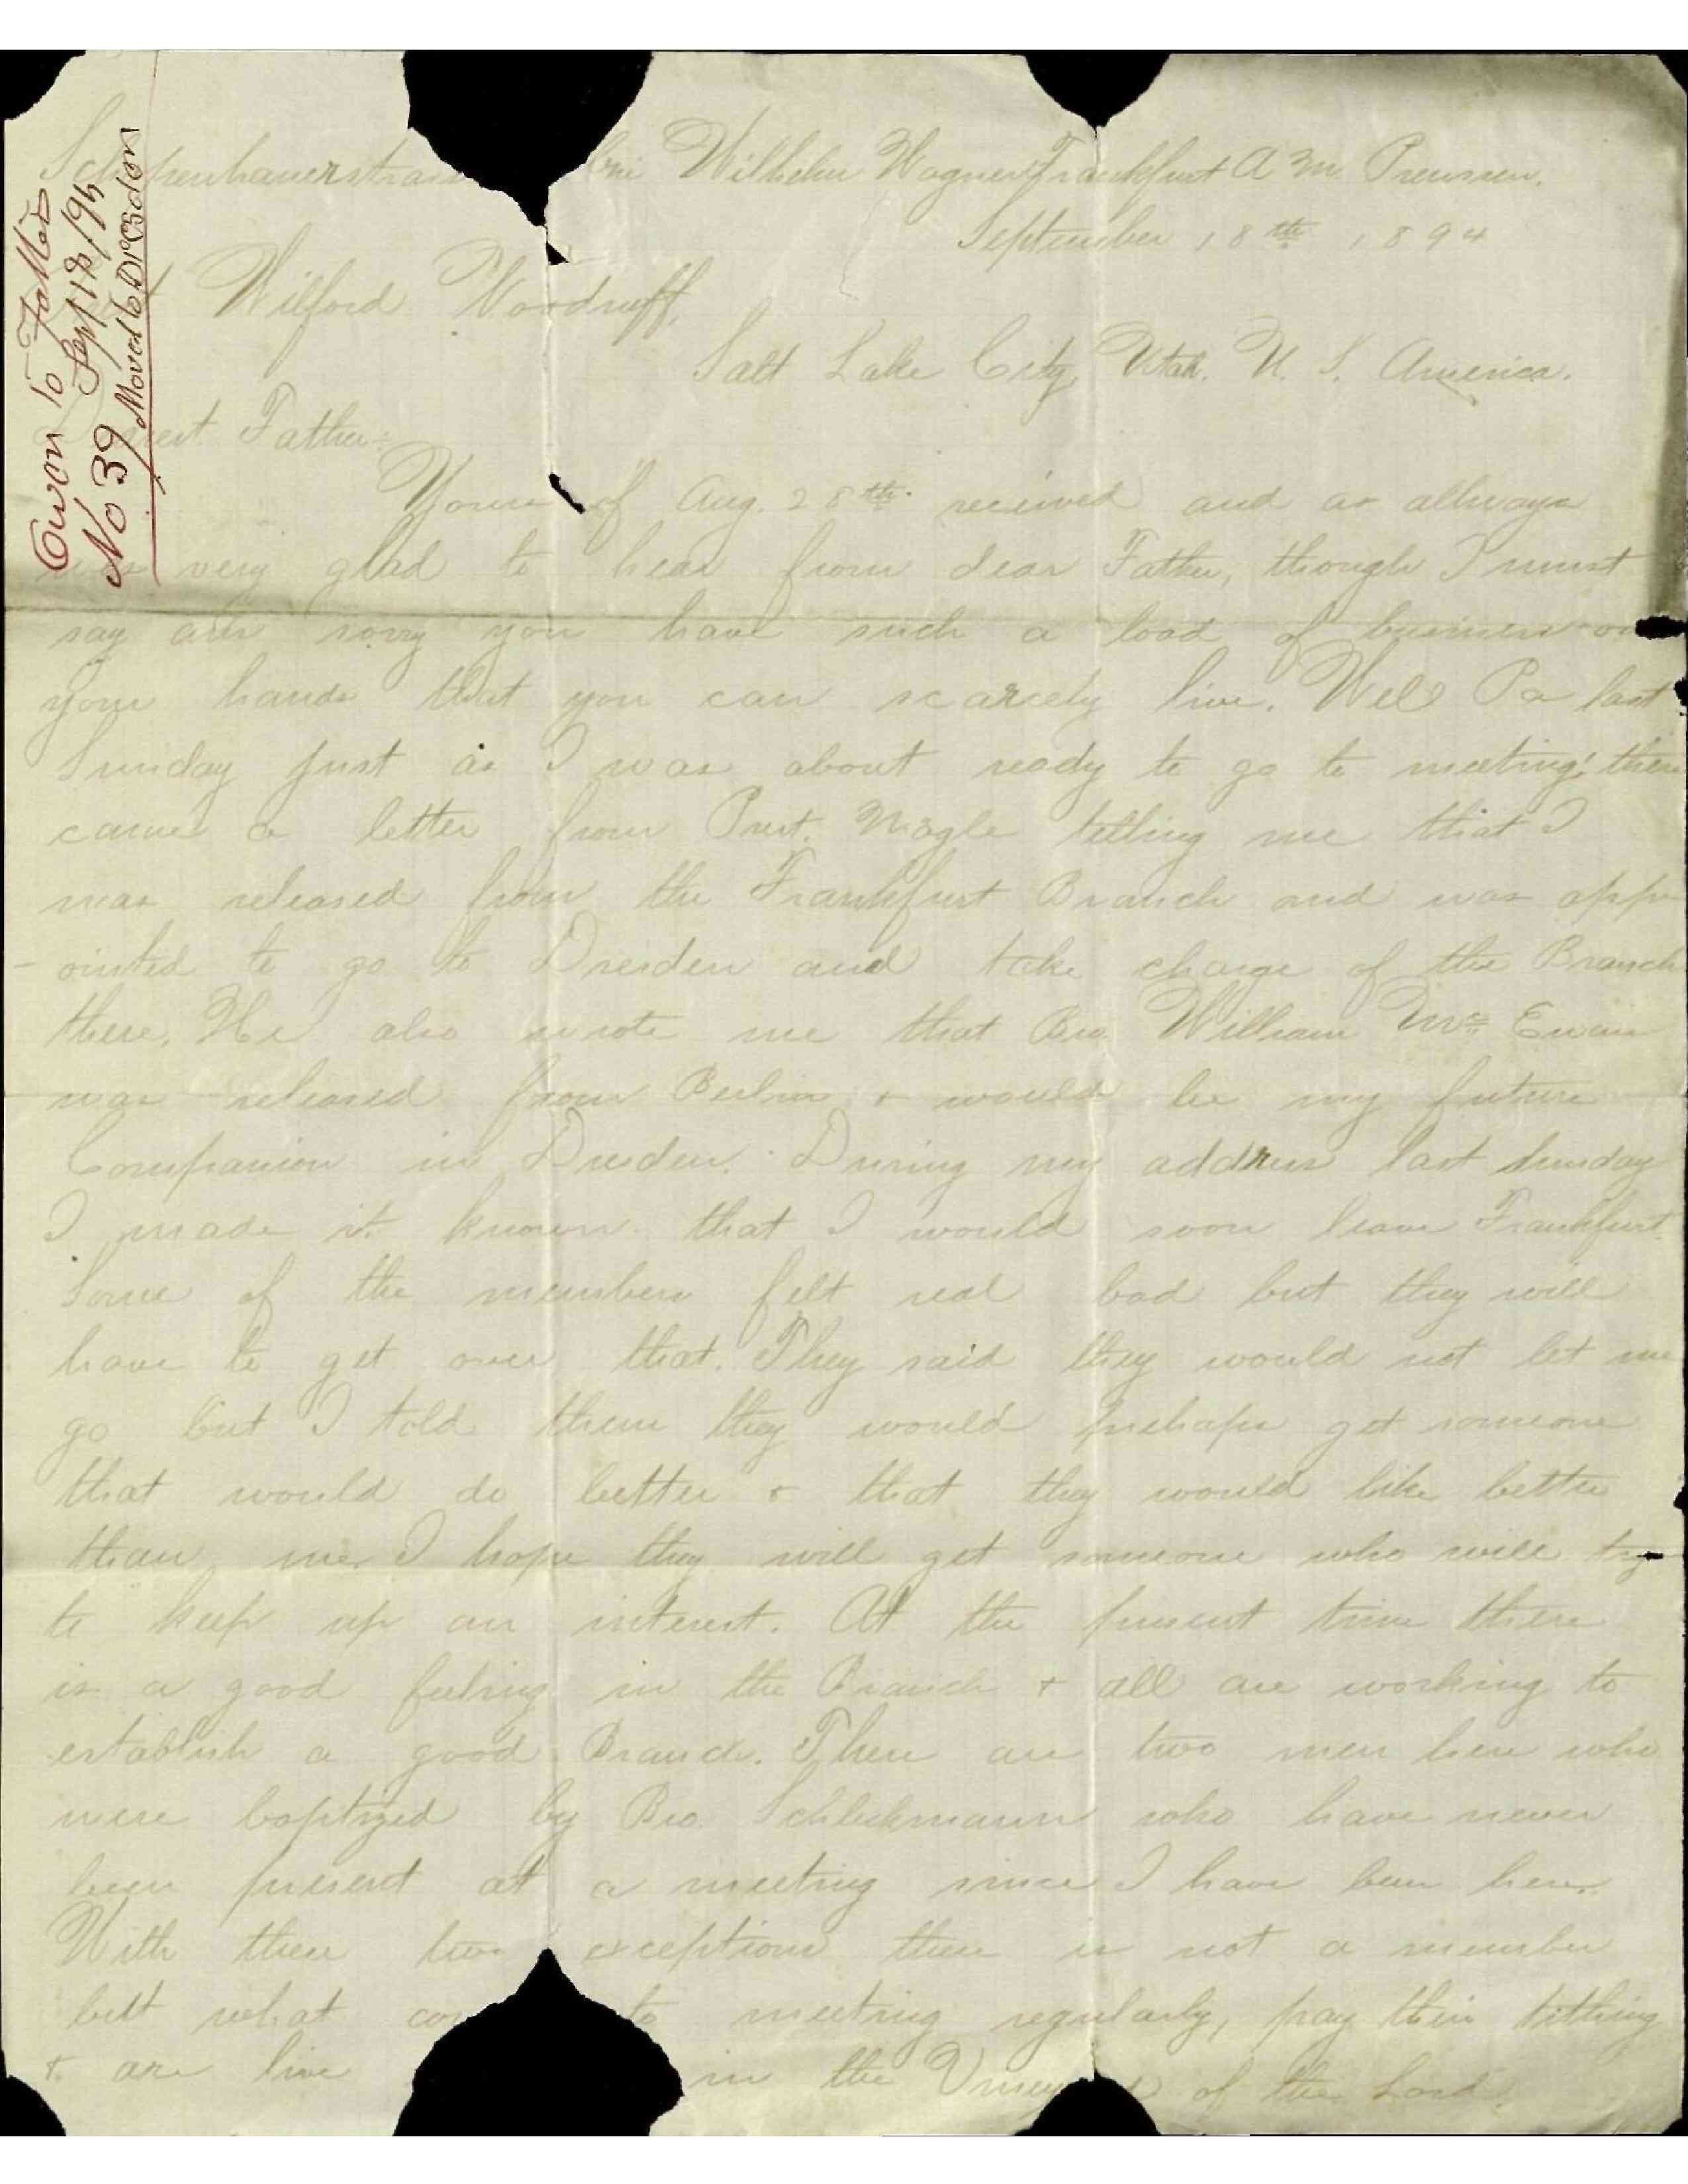 Owen to Father
Sept 18/94
No 39 Moved to Dresden
Wilhelm Wagner Frankfurt A M. Preussen.
September 18th 1894
Wilford Woodruff,
Salt Lake City, Utah. U. S. America.
Father:
Yours of Aug. 28th received and as allways
was very glad to hear from dear Father, though I must
say am sorry you have such a load of business on
your hands that you can scarcely live. Well Pa last
Sunday just as I was about ready to go to meeting, there
came a letter from Prest. Nagle telling me that I
was released from the Frankfurt Branch and was app-
-ointed to go to Dresden and take charge of the Branch
there. He also wrote me that Bro. William Mc Ewan
was released from Berlin + would be my future
Companion in Dresden. During my address last Sunday
I made it known that I would soon leave Frankfurt.
Some of the members felt real bad but they will
have to get over that. They said they would not let me
go but I told them they would perhaps get someone
that would do better + that they would like better
than me. I hope they will get someone who will try
to keep up an interest. At the present time there
is a good feeling in the Branch + all are working to
establish a good Branch. There are two men here who
were baptized by Bro. Schlickmann who have never
been present at a meeting since I have been here.
With these two exceptions there is not a member
but what to meeting regularly, pay their tithing
+ are live in the of the Lord.